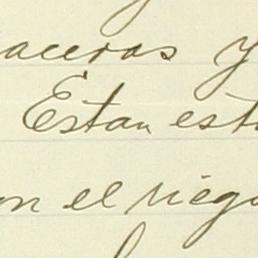 aceras y
Estan est
on el riego